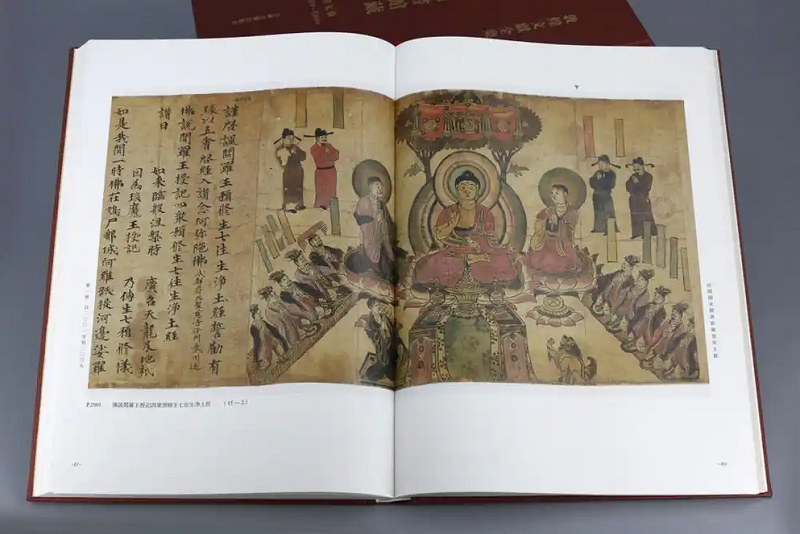 謹啓諷閻羅王預修生七往生淨土經誓勸有
緣以五會啓經入讚念阿弥陁佛
佛說閻羅王授記四衆預修生七往生淨土經
讚曰
如來臨般涅槃時 廣召天龍及地祇
因為琰魔王授記 乃傳生七預修儀
如是我聞一時佛在鳩尸那城阿維跋提河邊娑羅
P.2003 佛說閻羅王授記四衆預修生七往生淨土經
敦煌文獻全集